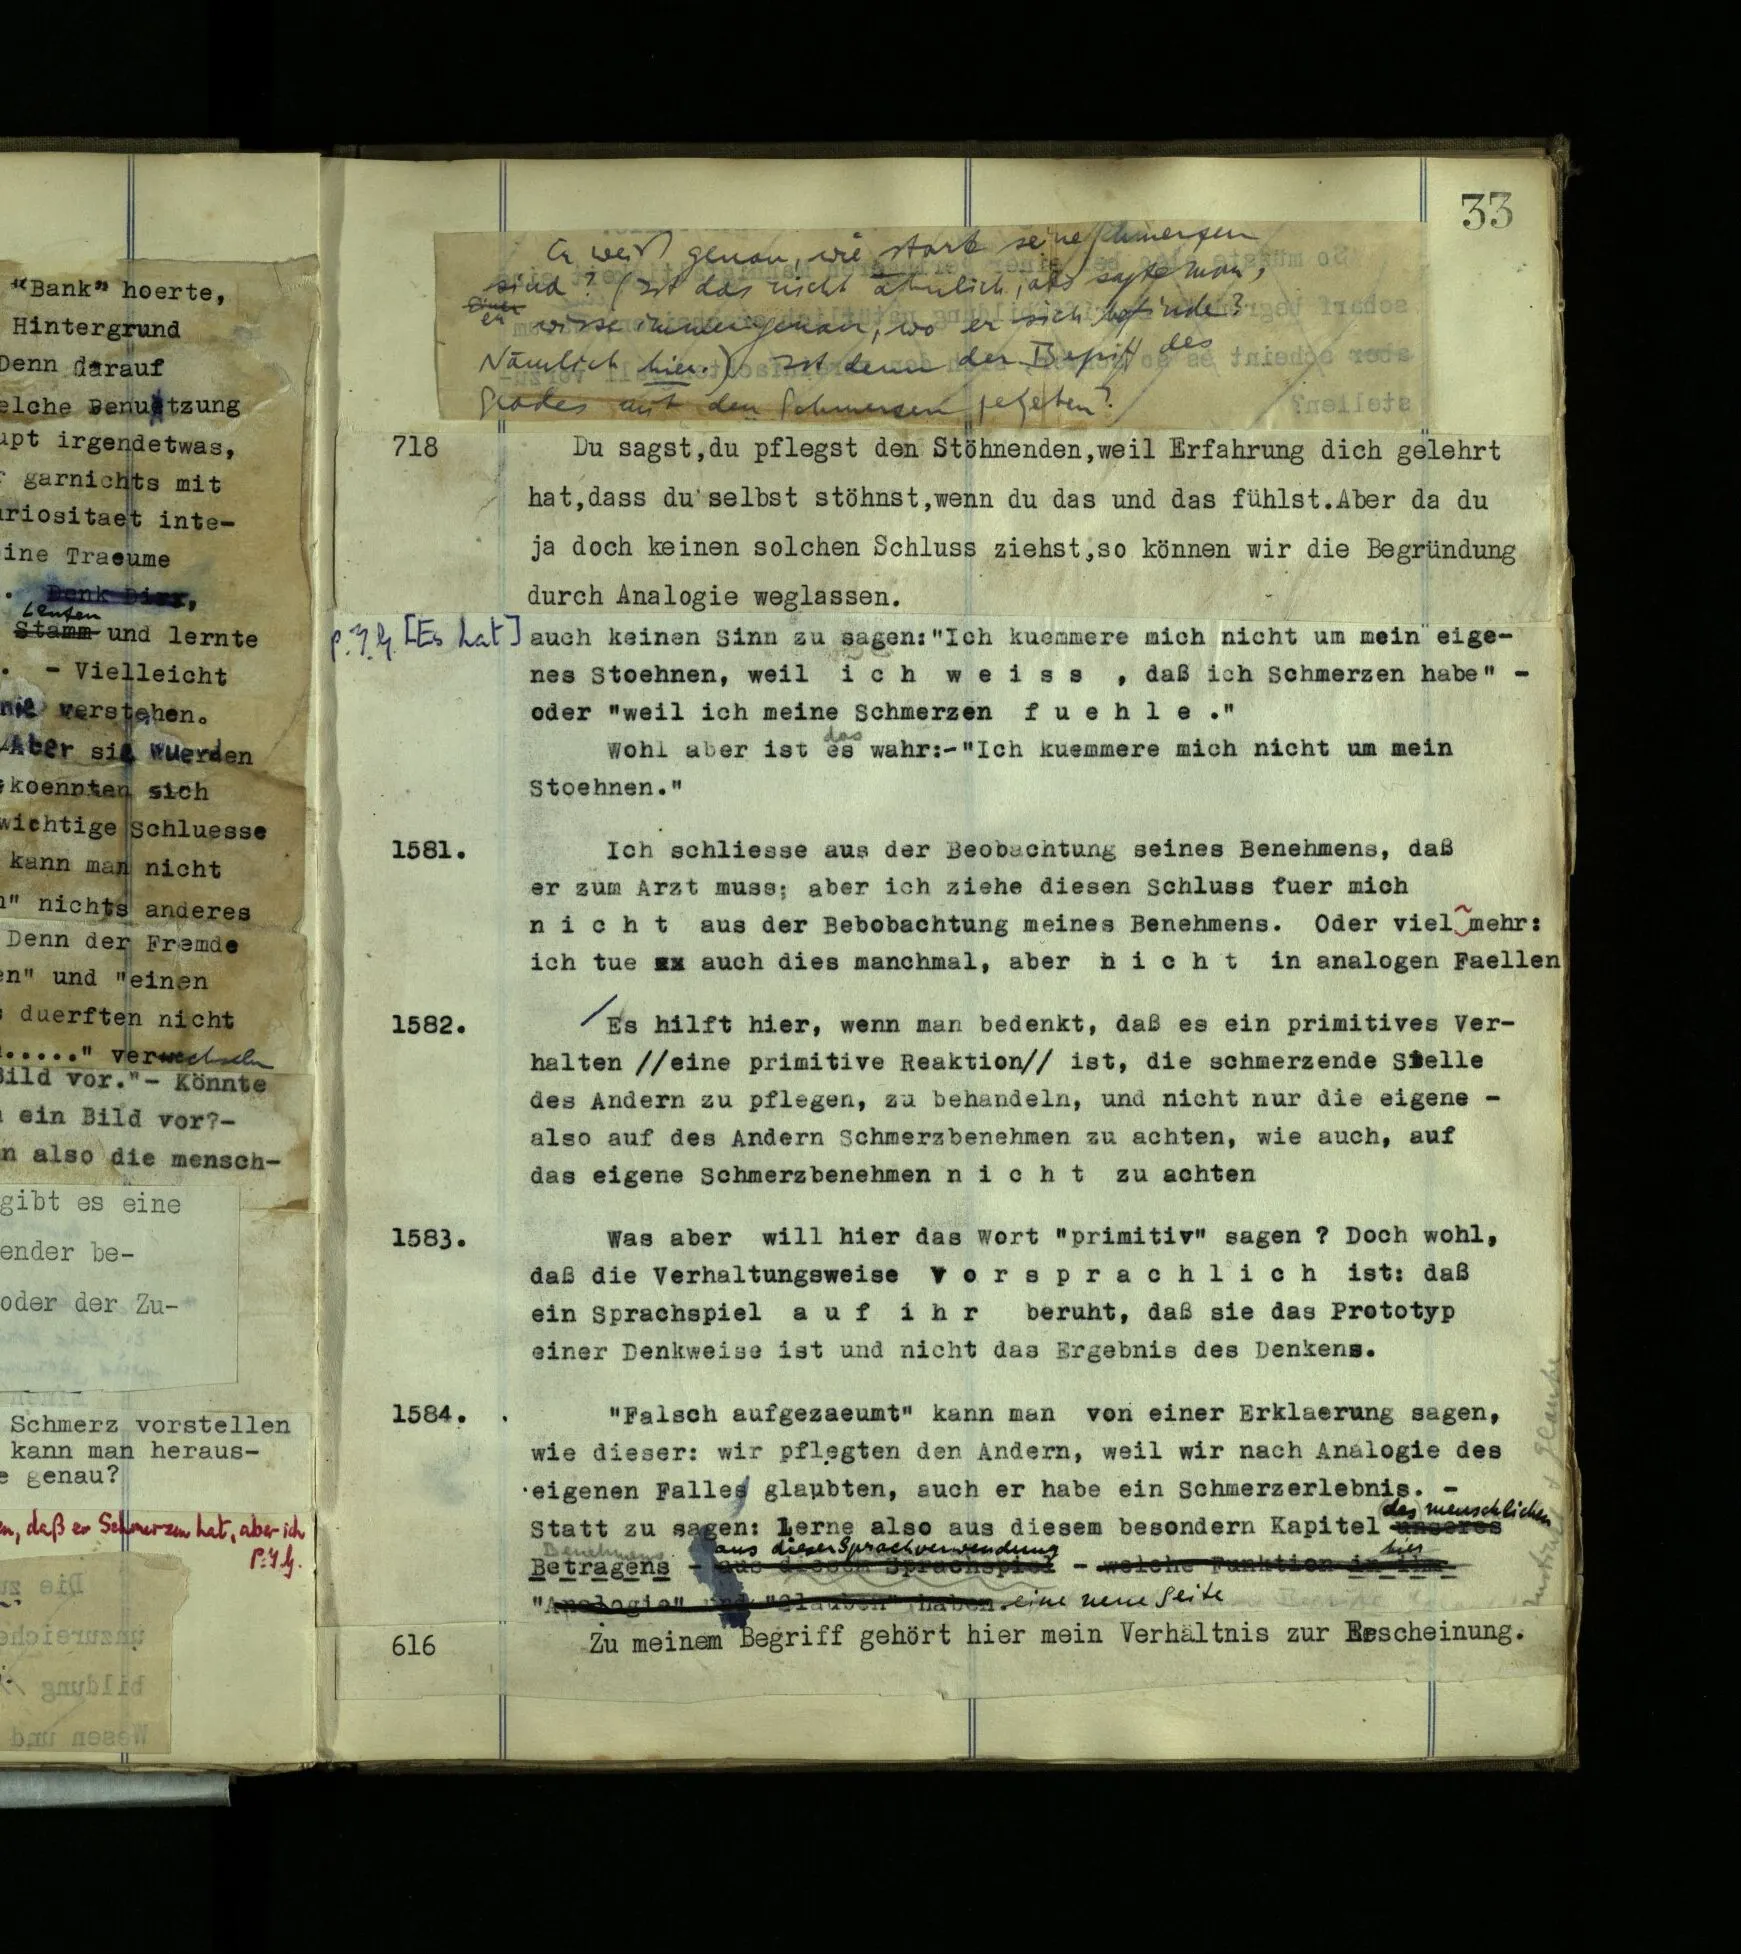 "Bank" hoerte,
Hintergrund
Denn darauf
elche Benutzung
upt irgendetwas,
garnichts mit
uriositaet inte-
ine Traeume
. Denk Dir,
Leuten
Stamm und lernte
. - Vielleicht
nie verstehen.
Aber sie wuerden
koennten sich
wichtige Schluesse
kann man nicht
n" nichts anderes
Denn der Fremde
en" und "einen
s duerften nicht
....." verwechseln
Bild vor."- Könnte
n ein Bild vor?-
n also die mensch-
gibt es eine
ender be-
oder der Zu-
Schmerz vorstellen
kann man heraus-
e genau?
en, daß er Schmerzen hat, aber ich
p.7.g.
33
Er weiß genau, wie stark seine Schmerzen
sind? (Ist das nicht ähnlich, als sagte man,
er wisse immer genau, wo er sich befinde?
Nämlich hier.) Ist denn der Begriff des
Grades mit den Schmerzen gegeben?
718 Du sagst,du pflegst den Stöhnenden,weil Erfahrung dich gelehrt
hat,dass du selbst stöhnst,wenn du das und das fühlst.Aber da du
ja doch keinen solchen Schluss ziehst,so können wir die Begründung
durch Analogie weglassen.
p.7.g. [Es hat] auch keinen Sinn zu sagen:"Ich kuemmere mich nicht um mein eige-
nes Stoehnen, weil i c h w e i s s , daß ich Schmerzen habe" -
oder "weil ich meine Schmerzen f u e h l e ."
das
Wohl aber ist es wahr:-"Ich kuemmere mich nicht um mein
Stoehnen."
1581. Ich schliesse aus der Beobachtung seines Benehmens, daß
er zum Arzt muss; aber ich ziehe diesen Schluss fuer mich
n i c h t aus der Bebobachtung meines Benehmens. Oder viel mehr:
ich tue xx auch dies manchmal, aber n i c h t in analogen Faellen
1582. /Es hilft hier, wenn man bedenkt, daß es ein primitives Ver-
halten //eine primitive Reaktion// ist, die schmerzende Stelle
des Andern zu pflegen, zu behandeln, und nicht nur die eigene -
also auf des Andern Schmerzbenehmen zu achten, wie auch, auf
das eigene Schmerzbenehmen n i c h t zu achten
1583. Was aber will hier das Wort "primitiv" sagen ? Doch wohl,
daß die Verhaltungsweise v o r s p r a c h l i c h ist: daß
ein Sprachspiel a u f i h r beruht, daß sie das Prototyp
einer Denkweise ist und nicht das Ergebnis des Denkens.
1584. "Falsch aufgezaeumt" kann man von einer Erklaerung sagen,
wie dieser: wir pflegten den Andern, weil wir nach Analogie des
eigenen Falles glaubten, auch er habe ein Schmerzerlebnis. -
des menschlichen
Statt zu sagen: Lerne also aus diesem besondern Kapitel unseres
Benehmens aus dieser Sprachverwendung hier
Betragens - aus diesem Sprachspiel - welche Funktion in ihm
"Analogie" und "Glauben" haben. eine neue Seite
616 Zu meinem Begriff gehört hier mein Verhältnis zur Erscheinung.